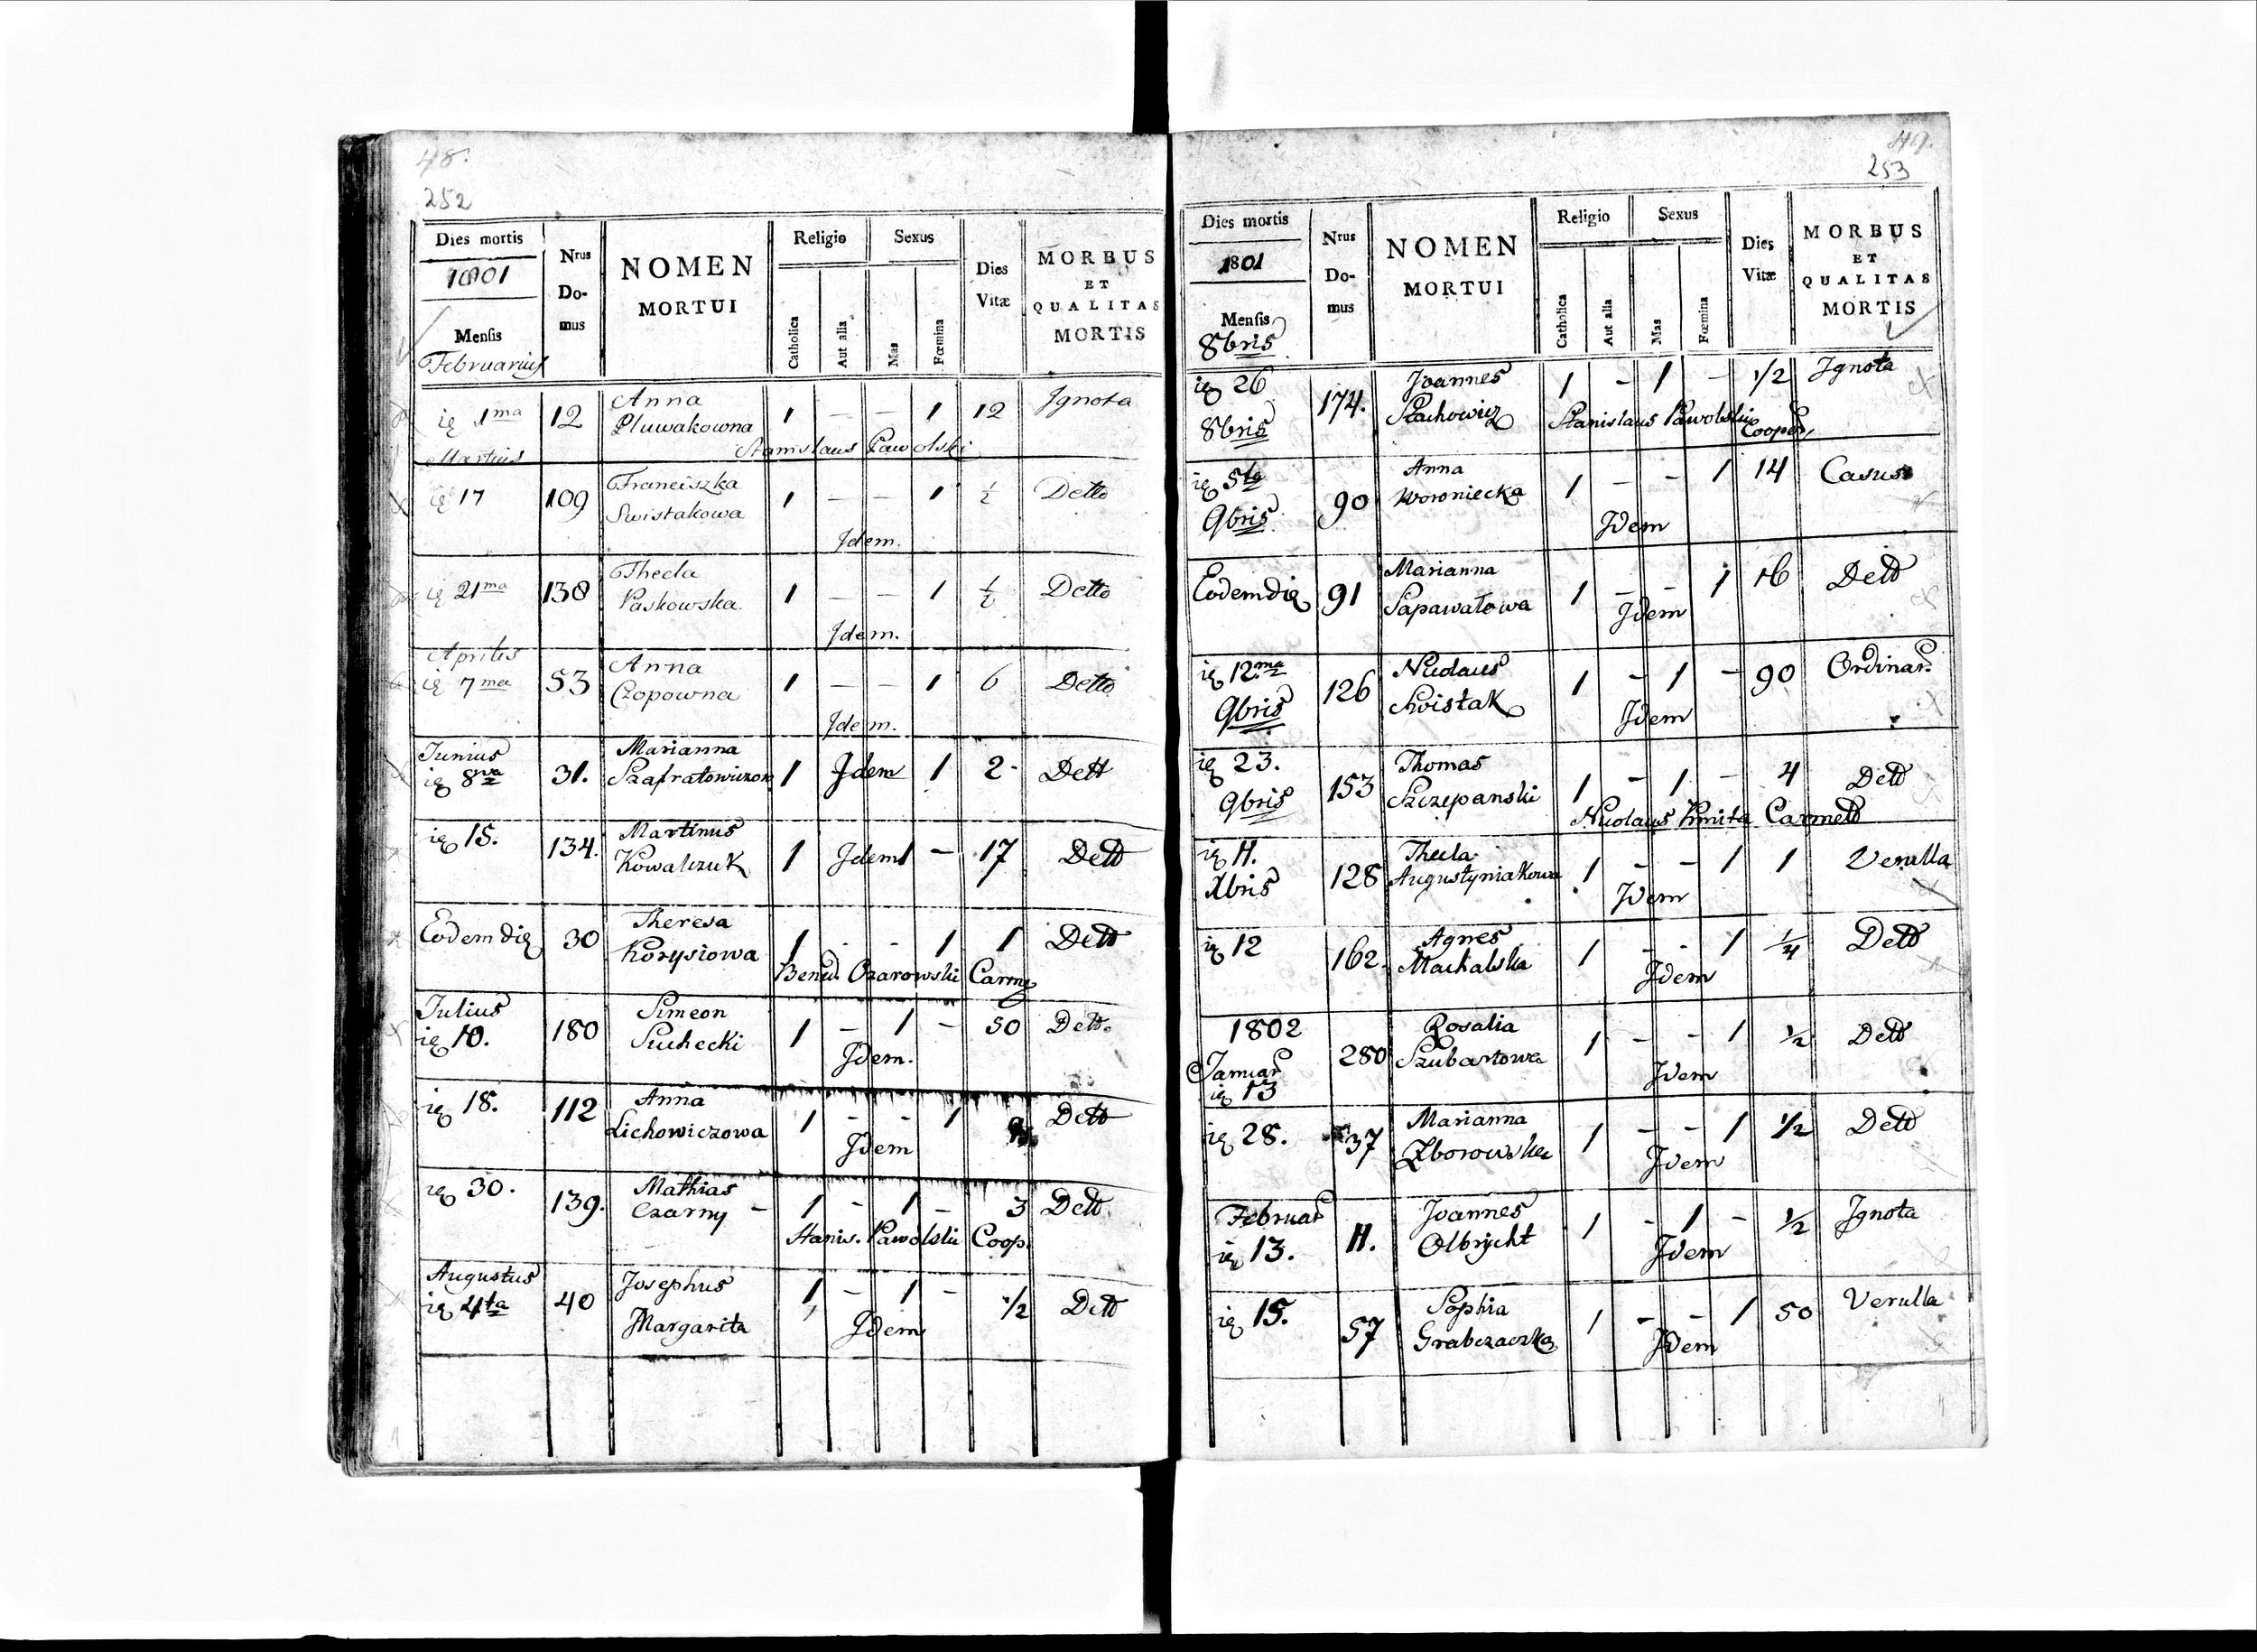 48.
252
Dies mortis
1801
Mensis
Februarius
Nrus
Do-
mus
NOMEN
MORTUI
Religio
Catholica
Aut alia
Sexus
Mas
Fœmina
Dies
Vitæ
MORBUS
ET
QUALITAS
MORTIS
ie 1ma 12 Anna 1 — — 1 12 Ignota
Pluwakowna
Stanislaus Pawolski
Martius
ie 17 109 Franciszka 1 — — 1 ½ Detto
Swistakowa
Idem.
ie 21ma 138 Thecla 1 — — 1 ½ Detto
Paskowska.
Idem.
Aprilis
ie 7ma 53 Anna 1 — — 1 6 Detto
Czopowna
Idem.
Junius Marianna
ie 8va 31. 1 Idem 1 2 Dett
ie 15. 134. Martinus 1 Idem 1 - 17 Detto
Kowalczuk
Eodem die 30 Theresa 1 - - 1 1 Detto
Korysiowa
Bened. Ozarowski Carme
Julius Simeon
ie 10. 180 Suchecki 1 - 1 - 50 Detto
Idem.
ie 18. 112 Anna 1 - - 1 Detto
Lichowiczowa
Idem
ie 30. 139. Mathias 1 - 1 - 3 Detto
Czarny -
Stanis. Pawolski Coop.
Augustus Josephus
ie 4ta 40 Margarita 1 - 1 - 1/2 Detto
Idem
49.
253
Dies mortis
1801
Mensis
8bris
Nrus
Do-
mus
NOMEN
MORTUI
Religio
Catholica
Aut alia
Sexus
Mas
Fœmina
Dies
Vitæ
MORBUS
ET
QUALITAS
MORTIS
ie 26 174. Joannes 1 - 1 - 1/2 Ignota
8bris Stachowicz
Stanislaus Pawolski Cooper
ie 5ta 90 Anna 1 - - 1 14 Casus
9bris Woroniecka
Idem
Eodem die 91 Marianna 1 - - 1 16 Detto
Sapawatowa
Idem
ie 12ma 126 Nicolaus 1 - 1 - 90 Ordinar.
9bris Swistak
Idem
ie 23. 153 Thomas 1 - 1 - 4 Detto
9bris Szczepanski
Nicolaus Kmita Carmelit
ie 11. 128 Thecla 1 - - 1 1 Verulla
Xbris Augustyniakowa
Idem
ie 12 162. Agnes 1 - - 1 1/4 Detto
Machalska
Idem
1802 280 Rosalia 1 - - 1 1/2 Detto
Januar Szubartowa
ie 13 Idem
ie 28. 37 Marianna 1 - - 1 1/2 Detto
Zborowska
Idem
Februar Joannes
ie 13. 11. Olbrycht 1 - 1 - 1/2 Ignota
Idem
ie 15. 57 Sophia 1 - - 1 50 Verulla
Grabczaczka
Idem